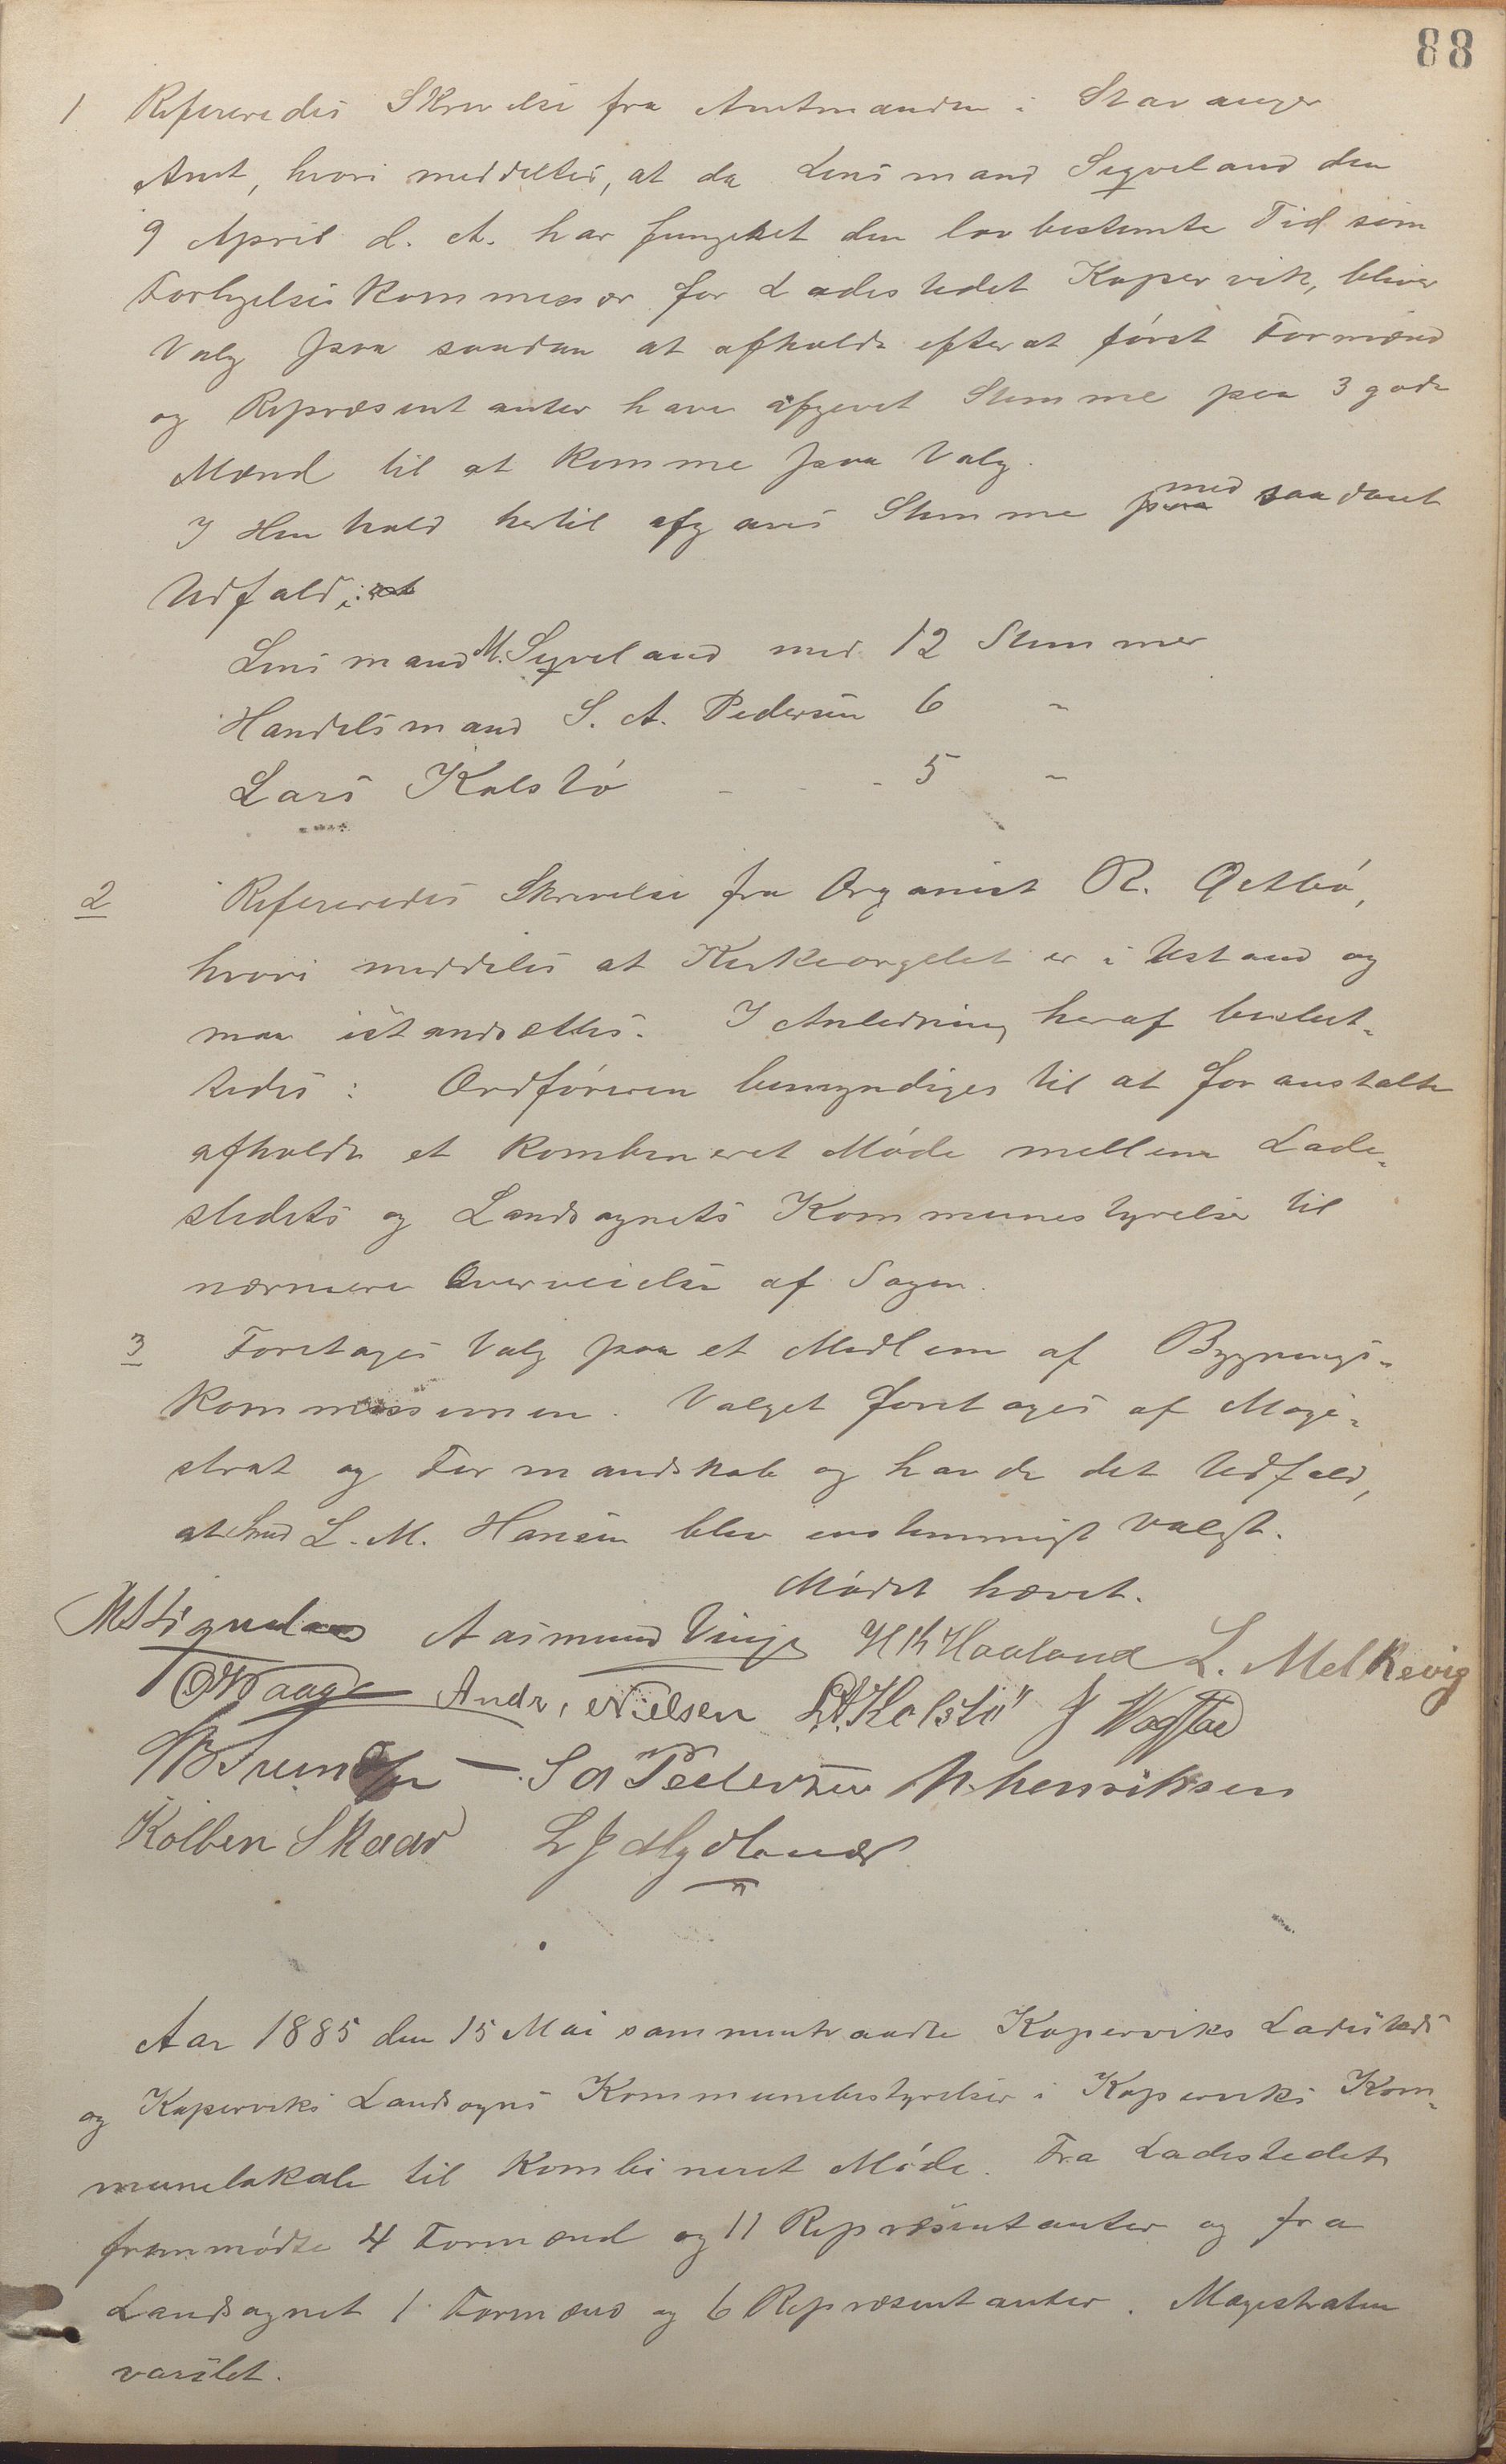 88
1 Refereredes Skrivelse fra Amtmanden i Stavanger
Amt, hvori meddeltes, at da Lensmand Syveland den
9 April d. A. har fungeret den lovbestemte Tid som
Forligelseskommissær for Ladestedet Kopervik, bliver
Valg paa saadan at afholde efterat først Formænd
og Repræsentanter have afgivet Stemme paa 3 gode
Mænd til at komme paa Valg.
I Henhold hertil afgaves Stemme paa med saadant
Udfald: at
Lensmand M. Syveland med 12 Stemmer
Handelsmand S. A. Pedersen 6 "
Lars Kolstö - - - 5 "
2 Refereredes Skrivelse fra Organist R.
hvori meddeles at Kirkeorgelet er i Ustand og
maa istandsættes. I Anledning heraf beslut-
tedes: Ordføreren bemyndiges til at foranstalte
afholdt et kombineret Møde mellem Lade-
stedets og Landsognets Kommunestyrelse til
nærmere Overveielse af Sagen.
3 Foretages Valg paa et Medlem af Bygnings-
kommissionen. Valget foretages af Magi-
strat og Formandskab og havde det Udfald,
at Smed L. M. Hansen blev enstemmigt valgt.
Mødet hævet.
Aasmund Vinje H Th Haaland L. Melkevig
O Waage Andr. Nielsen L A Kolstö J
S A Pedersen N. Henriksen
Kolben Skaar L J Mydland
Aar 1885 den 15 Mai sammentraadte Koperviks Ladesteds
og Koperviks Landsogns Kommunebestyrelser i Koperviks Kom-
munelokale til Kombineret Møde. Fra Ladestedet
fremmødte 4 Formænd og 11 Repræsentanter og fra
Landsognet 1 Formænd og 6 Repræsentanter. Magistraten
varslet.